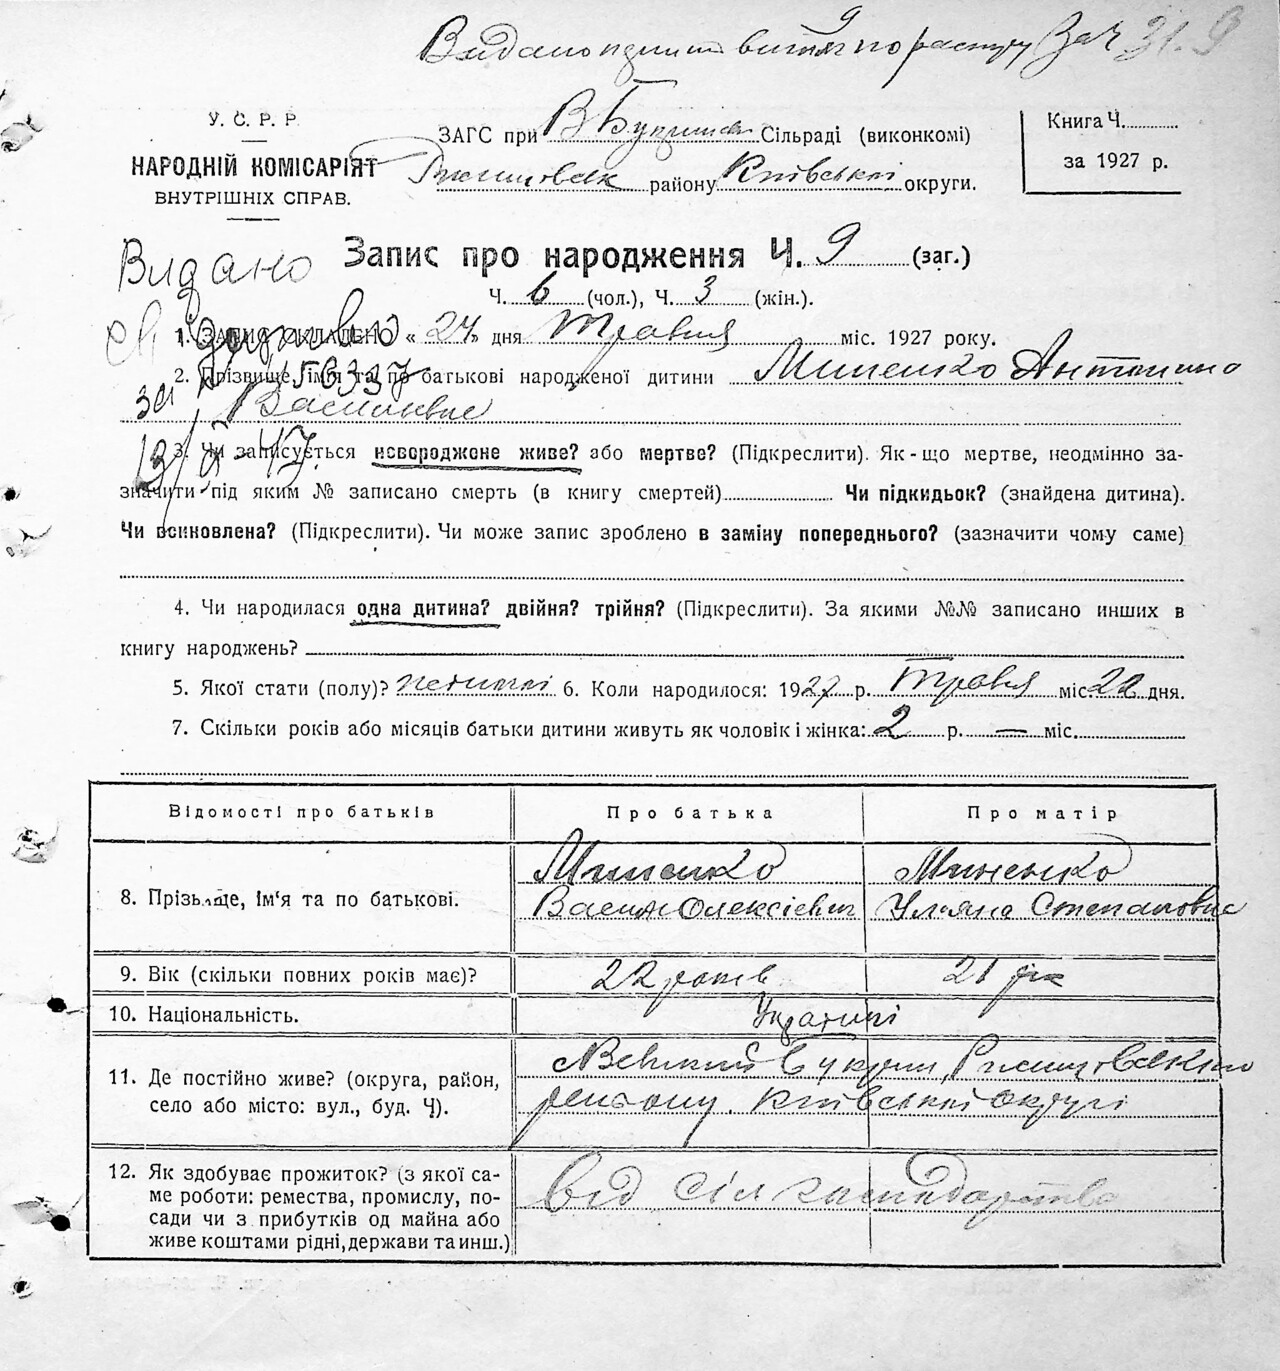 Видано витяг по
У. С. Р. Р.
НАРОДНІЙ КОМІСАРІЯТ
ВНУТРІШНІХ СПРАВ.
ЗАГС при В Букринськ Сільраді (виконкомі)
Ржищовськ району Київської округи.
Книга Ч.
за 1927 р.
Видано
Запис про народження Ч. 9 (заг.)
Ч. 6 (чол.), Ч. 3 (жін.).
1. ЗАПИС СКЛАДЕНО « 24» дня Травня міс. 1927 року.
2. Прізвище, ім'я та по батькові народженої дитини Миненко Антонина
Василівна
3. Чи записується новороджене живе? або мертве? (Підкреслити). Як-що мертве, неодмінно за-
значити під яким № записано смерть (в книгу смертей) Чи підкидьок? (знайдена дитина).
Чи всиновлена? (Підкреслити). Чи може запис зроблено в заміну попереднього? (зазначити чому саме)
4. Чи народилася одна дитина? двійня? трійня? (Підкреслити). За якими №№ записано инших в
книгу народжень?
5. Якої стати (полу)? жіночої 6. Коли народилося: 1927 р. Травня міс 22 дня.
7. Скільки років або місяців батьки дитини живуть як чоловік і жінка: 2 р. — міс.
Відомості про батьків Про батька Про матір
8. Прізвіще, ім'я та по батькові.
Миненко Миненко
Василь Олексієвич Уляна Степановна
9. Вік (скільки повних років має)? 22 років 21 рік
10. Національність. Українці
11. Де постійно живе? (округа, район,
село або місто: вул., буд. Ч).
Великий Букрин, Ржищовського
району. Київської округі
12. Як здобуває прожиток? (з якої са-
ме роботи: ремества, промислу, по-
сади чи з прибутків од майна або
живе коштами рідні, держави та инш.)
від сіл господарства